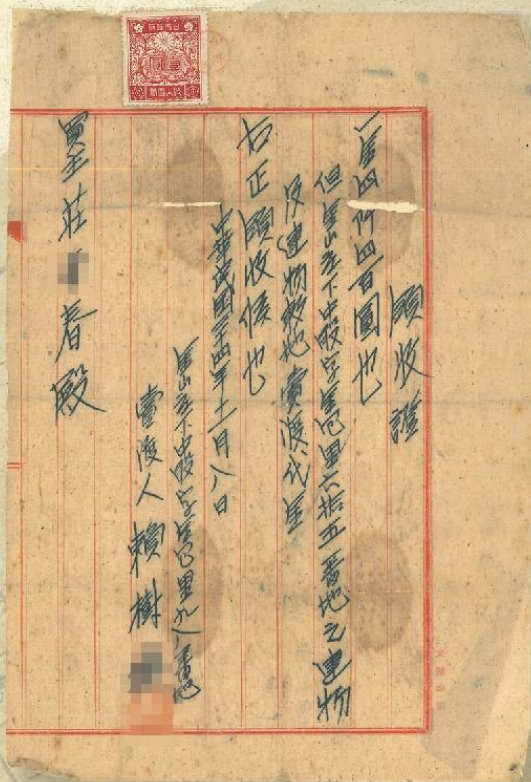 領收證
一金四仟四百圓也
但金山庄下中股字金包里六拾五番地之建物
及建物敷地賣渡代金
右正領收候也
中華民國三十四年十一月八日
金山庄下中股字金包里九八番地
賣渡人 賴樹
買主 莊 春殿